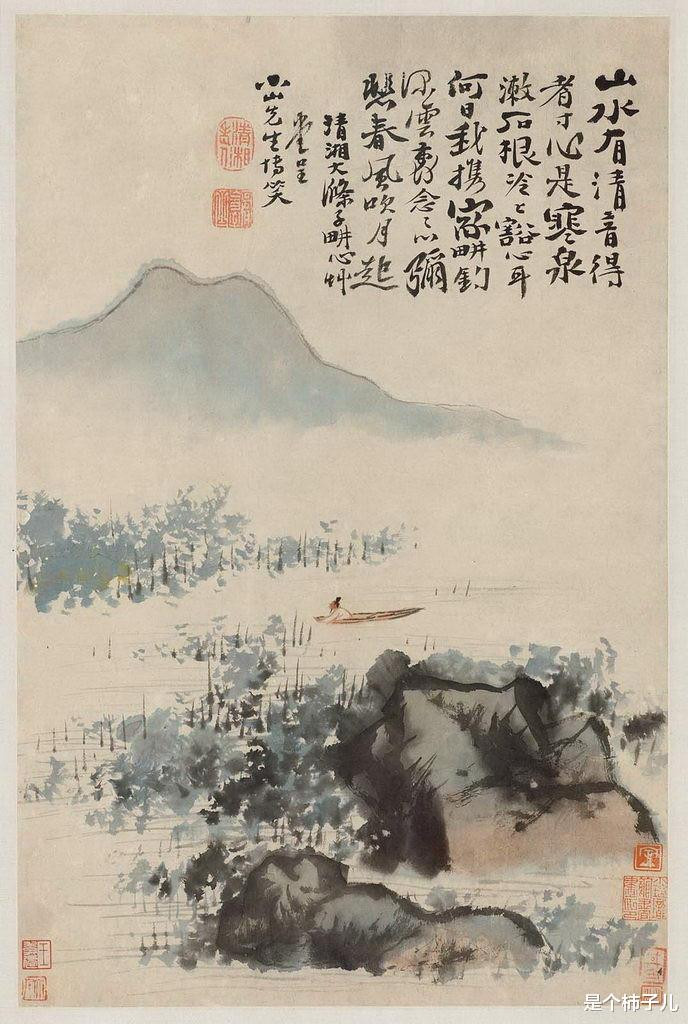 山水有清音得
者寸心是寒泉
漱石根冷冷豁心耳
何日我携家畊釣
深雲裏念之心彌
愁春風吹月起
清湘大滌子畊心艸
堂呈
小山先生博笑
清湘
是个柿子儿